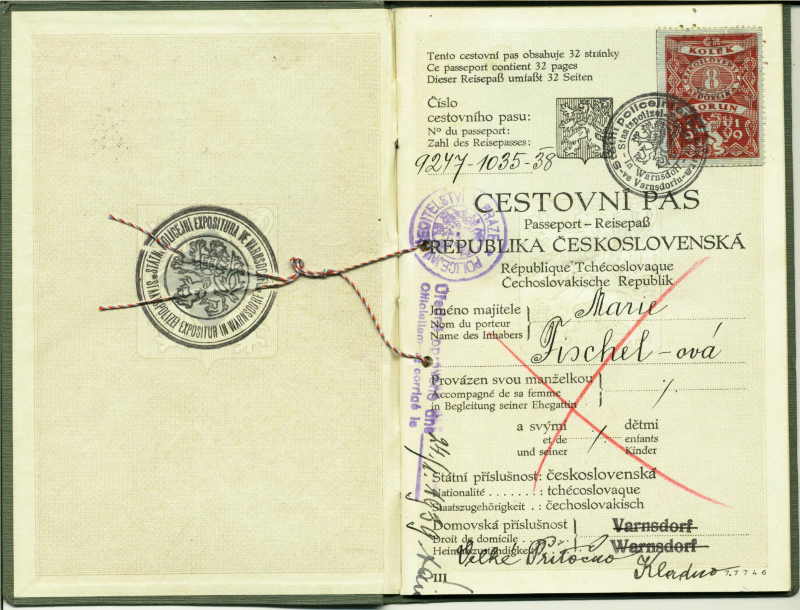 STÁTNÍ POLICEJNÍ EXPOSITURA VE VARNSDORFU
STAATSPOLIZEI EXPOSITUR IN WARNSDORF
Tento cestovní pas obsahuje 32 stránky
Ce passeport contient 32 pages
Dieser Reisepaß umfaßt 32 Seiten
KOLEK
8
KORUN
Číslo
cestovního pasu:
Nº du passeport:
Zahl des Reisepasses:
9247-1035-38
in Warnsdorf
ve Varnsdorfu
CESTOVNÍ PAS
Passeport – Reisepaß
REPUBLIKA ČESKOSLOVENSKÁ
République Tchécoslovaque
Čechoslovakische Republik
Jméno majitele
Nom du porteur
Name des Inhabers
Marie
Fischel-ová
Provázen svou manželkou
Accompagné de sa femme
in Begleitung seiner Ehegattin
·/.
a svými
et de
und seiner
·/.
dětmi
enfants
Kinder
Státní příslušnost: československá
Nationalité . . . . . . . : tchécoslovaque
Staatszugehörigkeit . : čechoslovakisch
Domovská příslušnost
Droit de domicile
Heimatzuständigkeit
Varnsdorf
Warnsdorf
Velké Přítočno
Kladno
III
Officiellement corrigé le